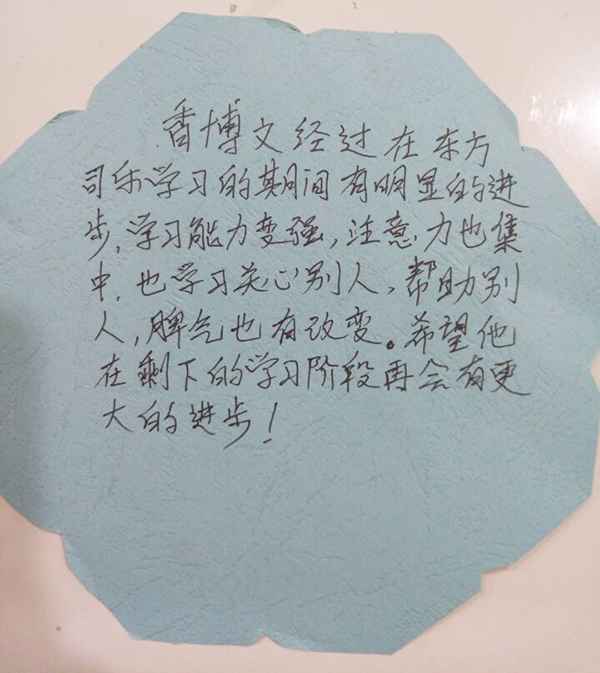 香博文经过在东方
司乐学习的期间有明显的进
步,学习能力变强,注意力也集
中,也学习关心别人,帮助别
人,脾气也有改变。希望他
在剩下的学习阶段再会有更
大的进步!